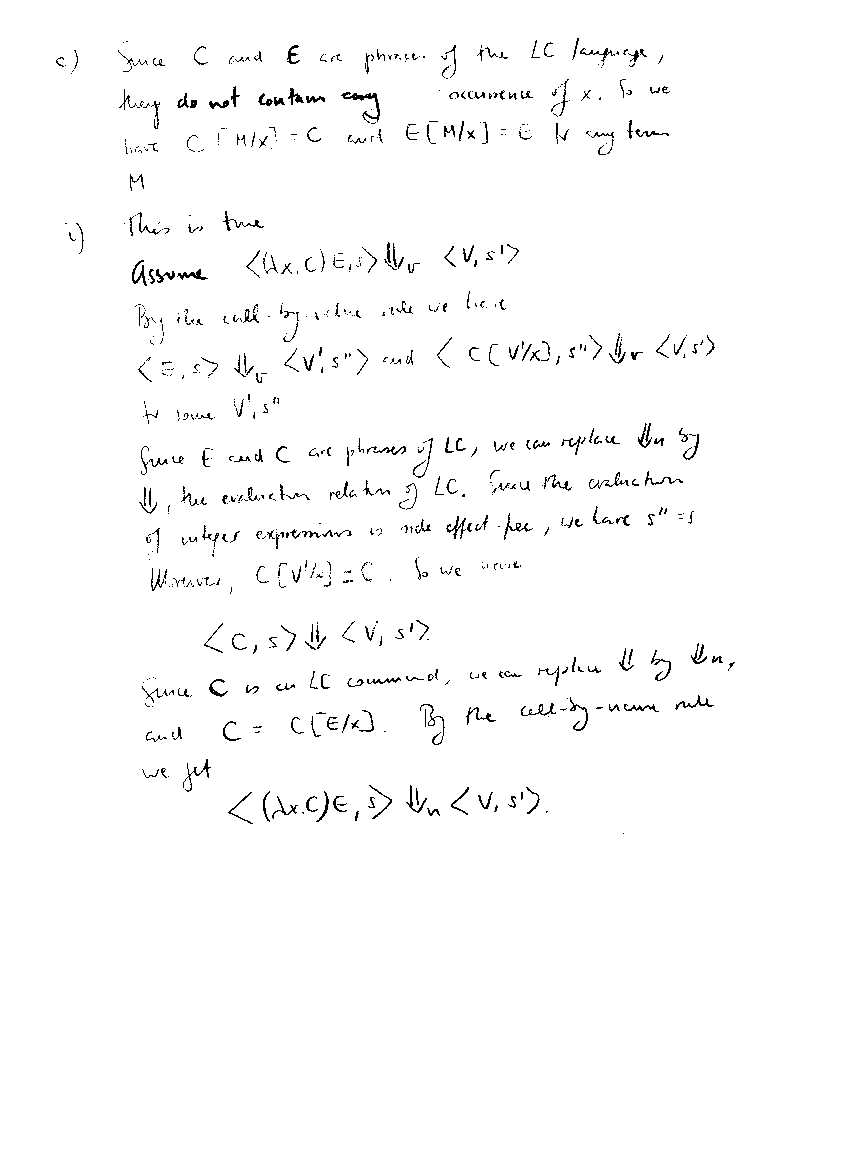 c) Since C and E are phrases of the LC language,
they do not contain any occurrence of x. So we
have C[M/x] = C and E[M/x] = E for any term
M
i) This is true
Assume <(λx.C)E,s> ⇓v <V,s'>
By the call-by-value rule we have
<E,s> ⇓v <V',s"> and <C[V'/x],s"> ⇓v <V,s'>
for some V',s"
Since E and C are phrases of LC, we can replace ⇓n by
⇓, the evaluation relation of LC. Since the evaluation
of integer expressions is side effect-free, we have s" = s
Moreover, C[V'/x] = C. So we have
<C,s> ⇓ <V,s'>.
Since C is an LC command, we can replace ⇓ by ⇓n,
and C = C[E/x]. By the call-by-name rule
we get
<(λx.C)E,s> ⇓n <V,s'>.